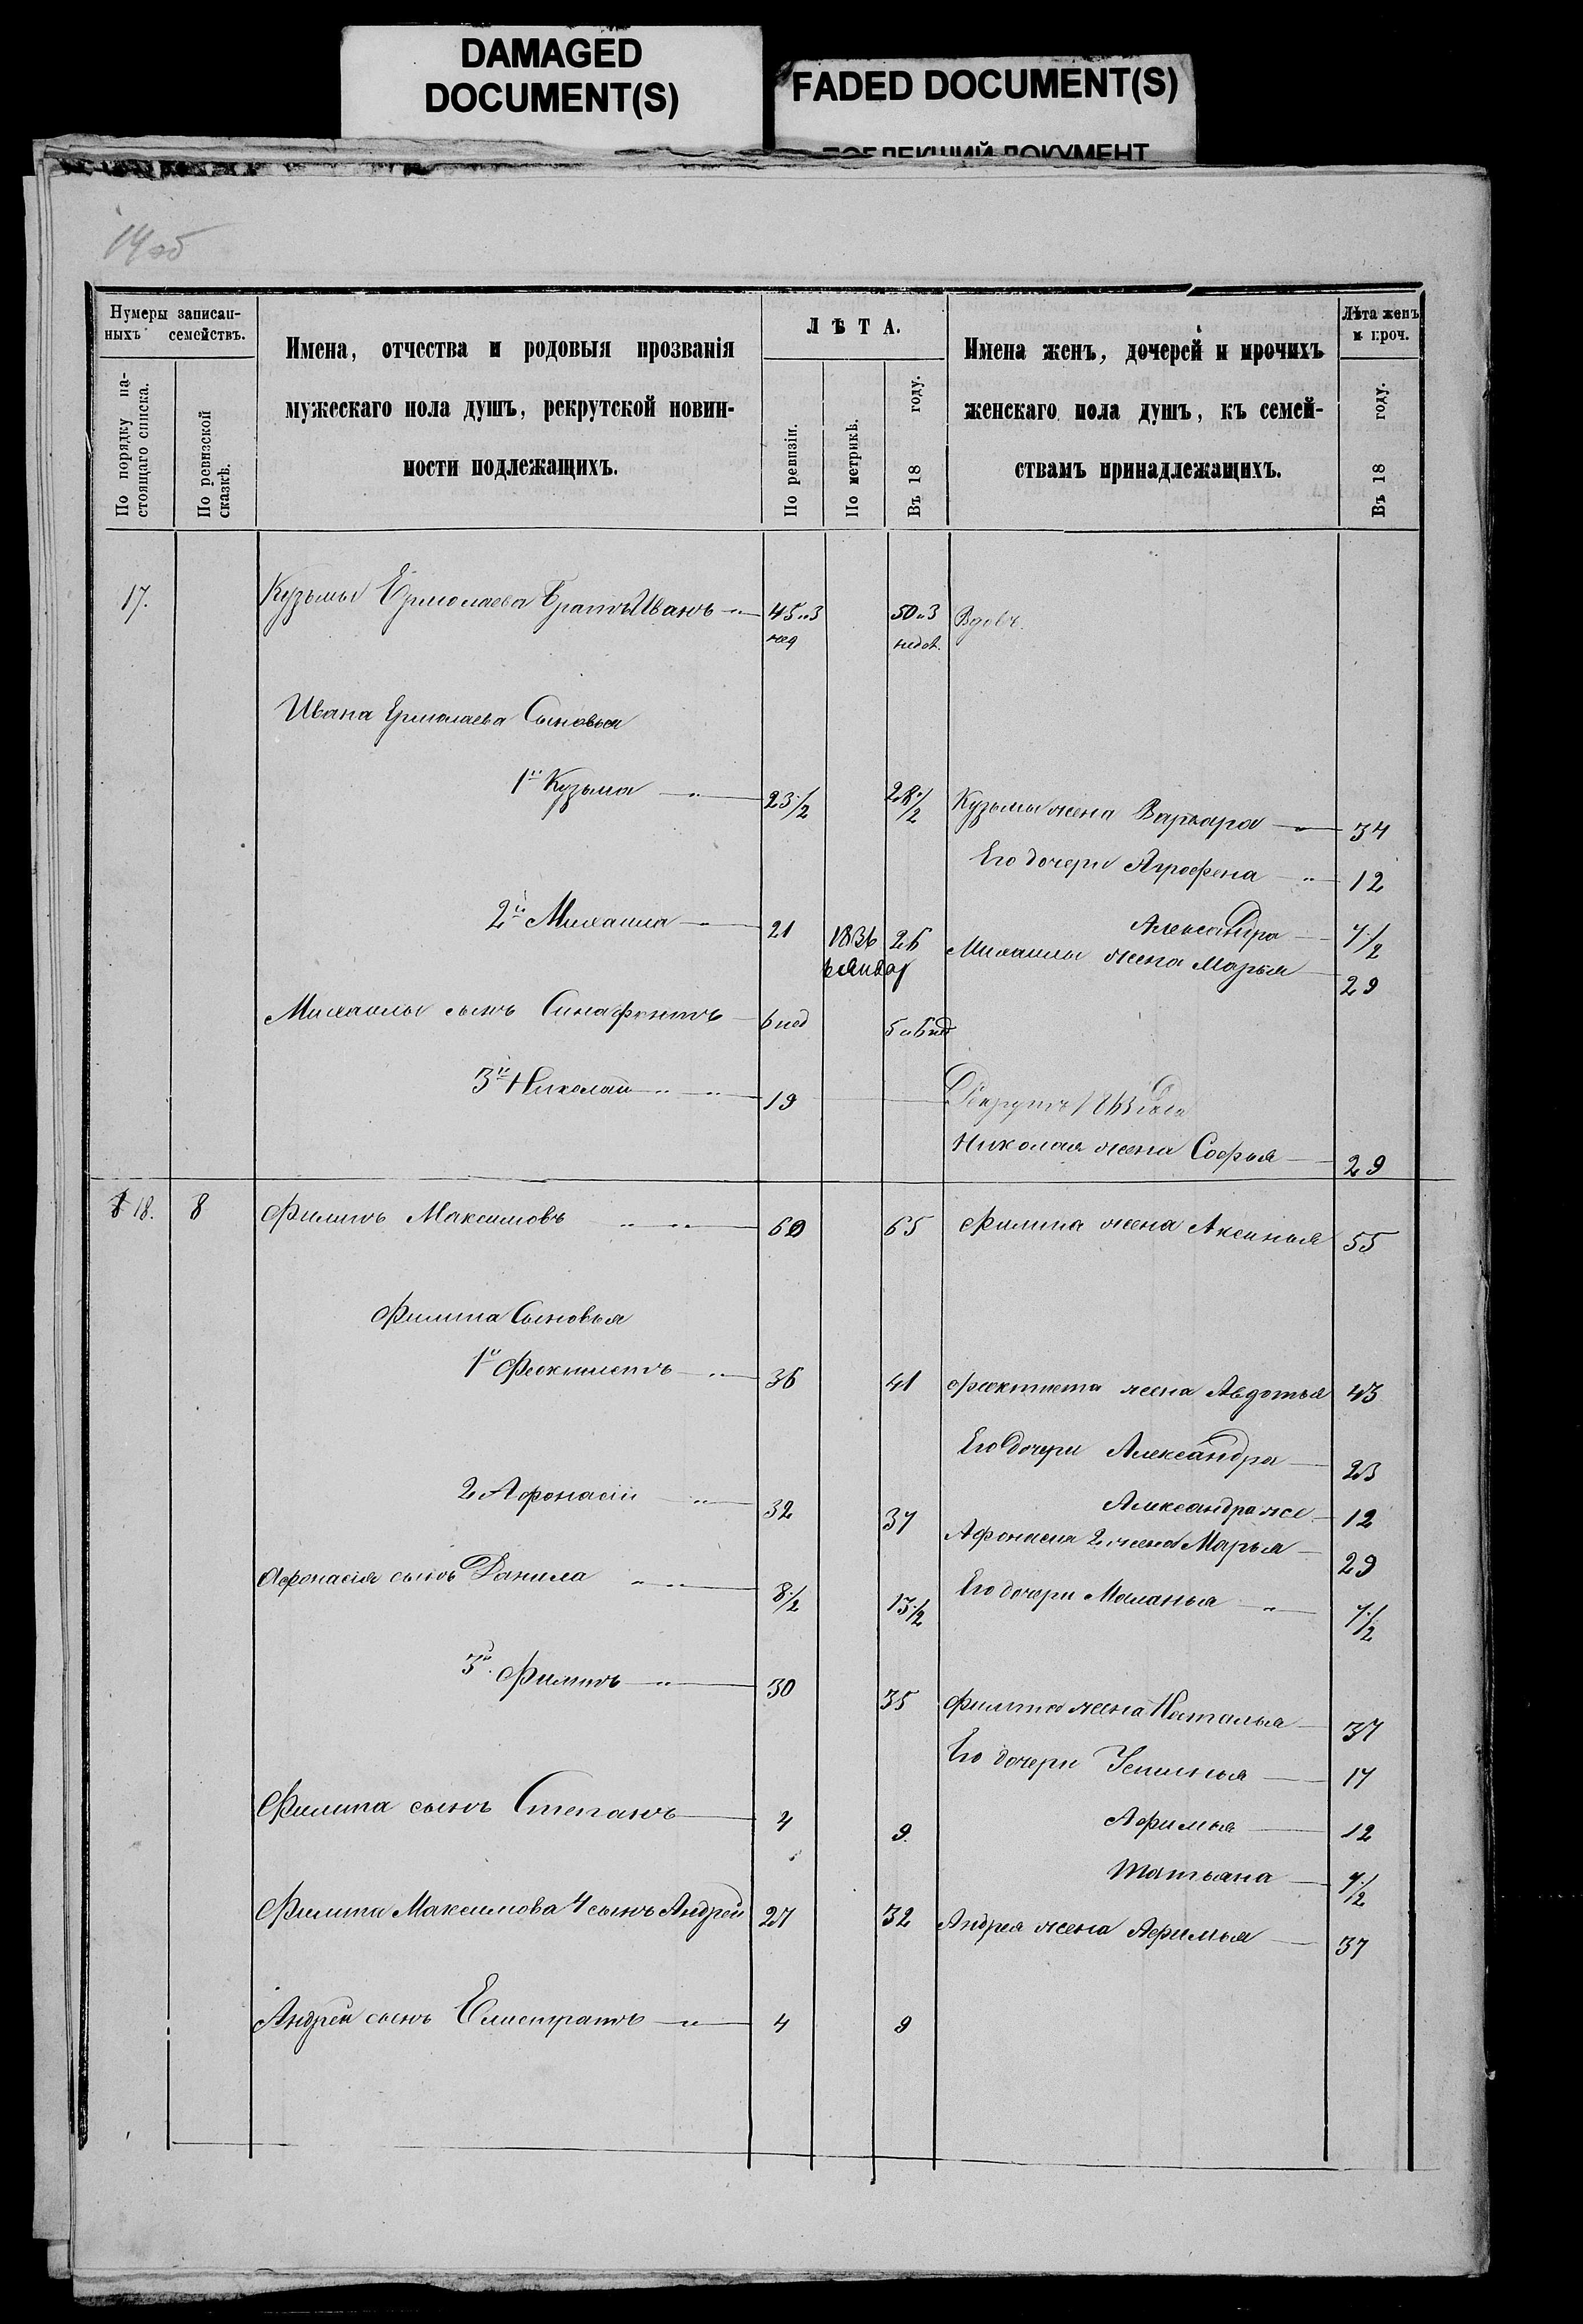 DAMAGED
DOCUMENT(S)
FADED DOCUMENT(S)
14об
Нумеры записан-
ныхъ семействъ.
По порядку на-
стоящаго списка.
По ревизской
сказкѣ.
Имена, отчества и родовыя прозванія
мужескаго пола душъ, рекрутской повин-
ности подлежащихъ.
ЛѢТА.
По ревизіи.
По метрикѣ.
Въ 18 году.
Имена женъ, дочерей и прочихъ
женскаго пола душъ, къ семей-
ствамъ принадлежащихъ.
Лѣта женъ
и проч.
Въ 18 году.
17. Кузьмы Ермолаева Братъ Иванъ 45 и 3 50 и 3 Вдовъ
нед недѣл.
Ивана Ермолаева Сыновья
1й Кузьма 23 1/2 28 1/2 Кузьмы жена Варвара 34
Его дочери Агрофена 12
2й Михаила 21 1836 26 Александра 7 1/2
Михаилы жена Марья 29
Михаилы сынъ 6 нед 5 и 6 нед
3й Николай 19 Рекрутъ 1863 года
Николая жена Софья 29
18. 8 Филипъ Максимовъ 60 65 Филипа жена Аксинья 55
Филипа Сыновья
1й Феоктистъ 36 41 Феоктиста жена Авдотья 43
Его дочери Александра 23
2 Афонасій 32 37 Александра же 12
Афонасія 2 жена Марья 29
Афонасія сынъ Данила 8 1/2 13 1/2 Его дочери Маланья 7 1/2
3й Филипъ 30 35 Филипа жена Наталья 37
Его дочери Устинья 17
Филипа сынъ Степанъ 4 9 Афимья 12
Татьяна 7 1/2
Филипа Максимова 4 сынъ Андрей 27 32 Андрея жена Афимья 37
Андрея сынъ Елистратъ 4 9